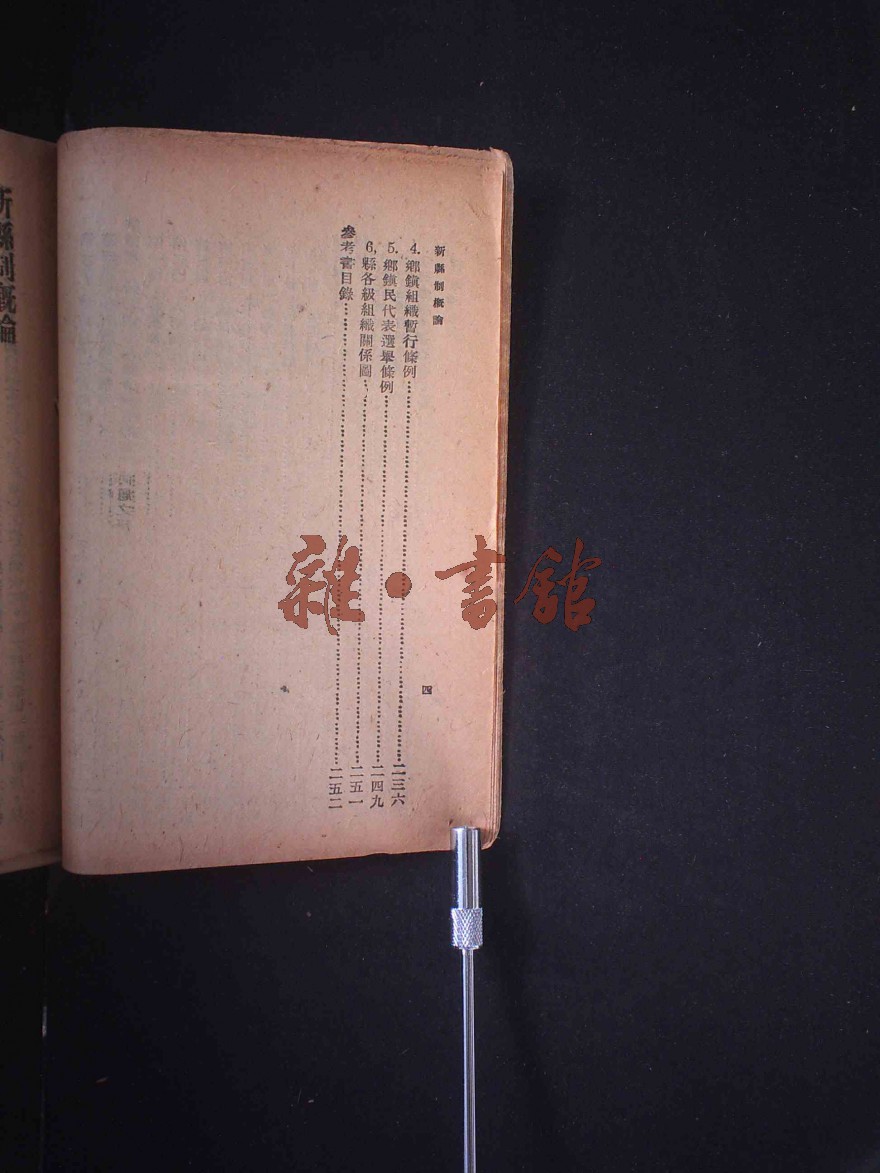 新縣制概論
四
4. 鄉鎭組織暫行條例……二三六
5. 鄉鎭民代表選舉條例……二四九
6. 縣各級組織關係圖……二五一
參考書目錄……二五二
新縣制概論
雜·書館